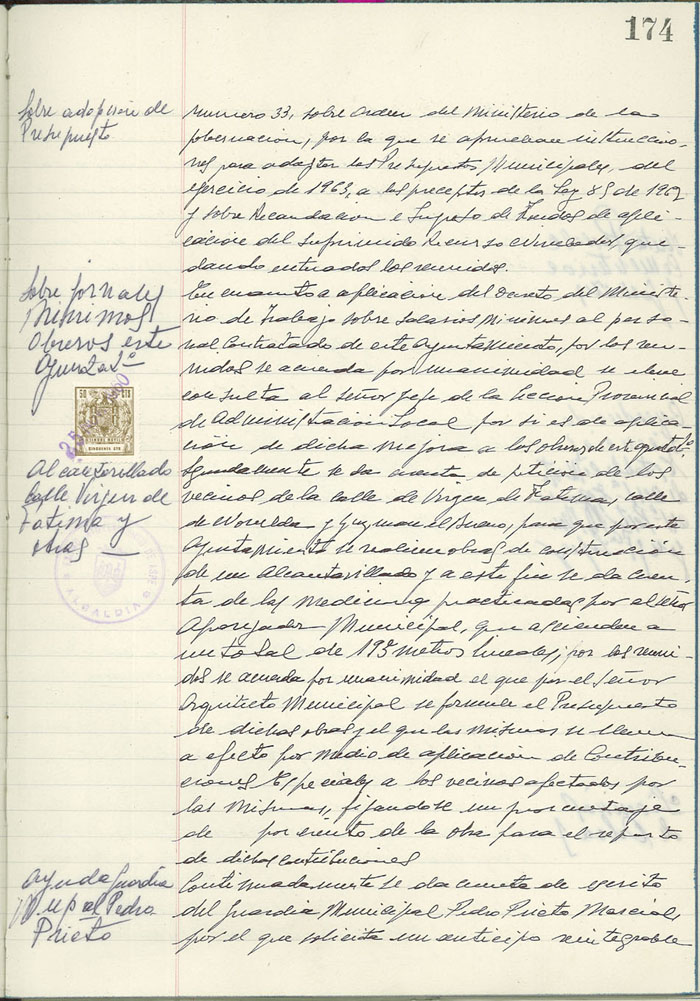 174
Sobre adopción de
Presupuesto
numero 33, sobre Orden del Ministerio de la
gobernacion, por la que se aprueban instruccio-
nes para adaptar los Presupuestos Municipales, del
ejercicio de 1963, a los preceptos de la Ley 85 de 1962
y sobre Recaudacion e Ingreso de Fondos de apli-
cacion del suprimido Recurso Nivelador, que-
dando enterados los reunidos.
Sobre jornales
Minimos
Obreros este
Ayuntasº
En cuanto a aplicacion del Decreto del Ministe-
rio de Trabajo sobre Salarios Minimos al perso-
nal Contratado de este Ayuntamiento, por los reu-
nidos se acuerda por unanimidad se eleve
consulta al señor Jefe de la Seccion Provincial
de Administracion Local por si es de aplica-
ción de dicha mejora a los obreros de este
50 CTS
CINCUENTA CTS
Alcantarillado
calle Virgen de
Fatima y
otras
ALCALDIA
Seguidamente se da cuenta de peticion de los
vecinos de la calle de Virgen de Fatima, calle
de Novelda y Guzman el Bueno, para que por este
Ayuntamiento se realicen obras de construcción
de un Alcantarillado y a este fin se da cuen-
ta de las mediciones practicadas por el señor
Aparejador Municipal, que ascienden a
un total de 195 metros lineales; por los reuni-
dos se acuerda por unanimidad el que por el Señor
Arquitecto Municipal se formule el Presupuesto
de dichas obras y el que las mismas se lleven
a efecto por medio de aplicacion de Contribu-
ciones Especiales a los vecinos afectados por
las mismas, fijandose un porcentaje
de por ciento de la obra para el reparto
de dichas contribuciones
Ayuda Guardia
Mupal Pedro
Prieto
Continuadamente se da cuenta de escrito
del Guardia Municipal Pedro Prieto Marcial
por el que solicita un anticipo reintegrable